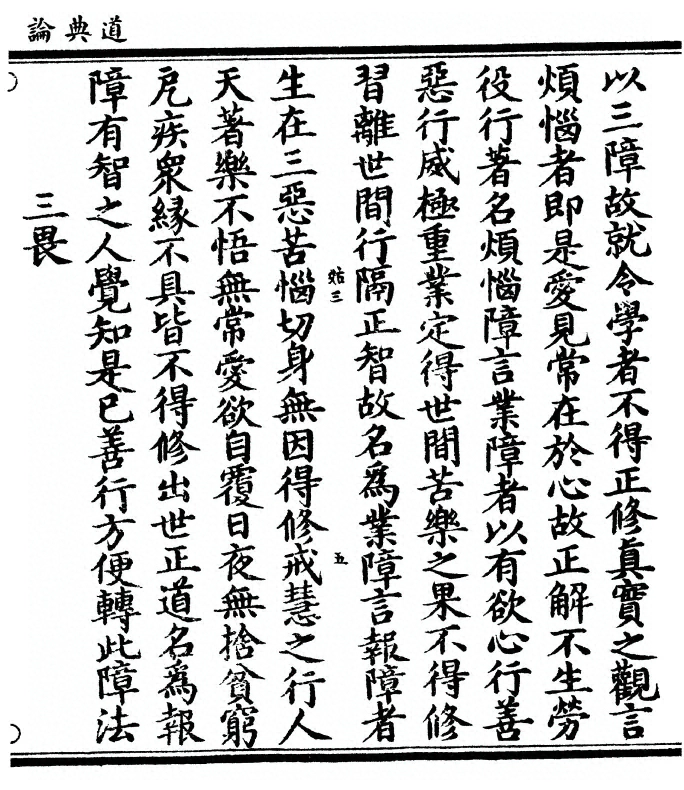 道典論
以三障故就令學者不得正修真實之觀言
煩惱者即是愛見常在於心故正解不生勞
役行著名煩惱障言業障者以有欲心行善
惡行威極重業定得世間苦樂之果不得修
習離世間行隔正智故名為業障言報障者
姑三
五
生在三惡苦惱切身無因得修戒慧之行人
天著樂不悟無常愛欲自覆日夜無捨貧窮
尫疾眾緣不具皆不得修出世正道名為報
障有智之人覺知是已善行方便轉此障法
三畏